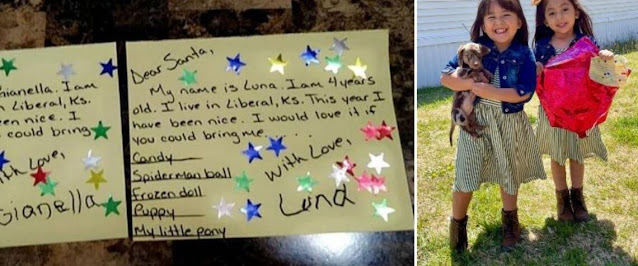 ianella. I am
n Liberal, Ks.
een nice. I
could bring
ith Love,
Gianella
Dear Santa,
My name is Luna. I am 4 years
old. I live in Liberal, Ks. This year I
have been nice. I would love it if
you could bring me......
Candy
Spiderman ball
Frozen doll
Puppy
My little pony
With Love,
Luna